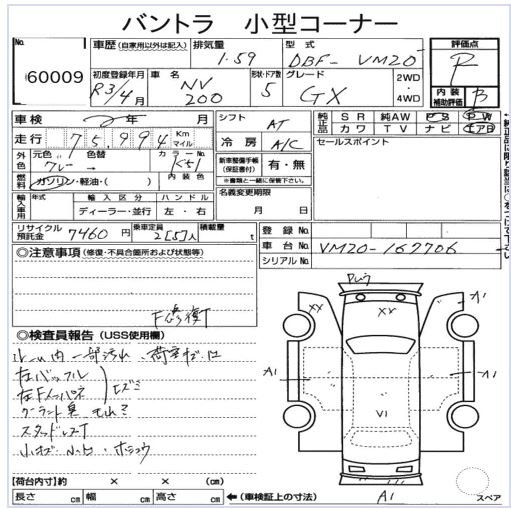 バントラ 小型コーナー
No. 60009
車歴 (自家用以外は記入) 排気量 1.59 型式 DBF-VM20 評価点 R
初度登録年月 R3/4月 車名 NV200 形状・ドア数 5 グレード GX 2WD・4WD 内装補助評価 B
車検 年 月 シフト AT 純正品 SR 純AW PS PW
カワ TV ナビ エアB
走行 75,994 Km マイル 冷房 A/C セールスポイント
外色 元色 グレー 色替 カラーNo. K51 新車整備手帳(保証書付) 有・無
※書類と一緒に保管して下さい。
燃料 ガソリン・軽油・( ) 内装色 名義変更期限
月 日
輸入車用 年式 輸入区分 ハンドル
ディーラー・並行 左・右
リサイクル預託金 7460円 乗車定員 2[5]人 積載量 t 登録No.
車台No. VM20-167706
シリアルNo.
◎注意事項 (修復・不具合箇所および状態等)
F修復T
◎検査員報告 (USS使用欄)
ルーム内一部汚れ
右バッフル
スタッドレスT
XX XX A1
A1 A1
V1
A1
【荷台内寸】約 × × (cm)
長さ cm 幅 cm 高さ cm ←(車検証上の寸法) スペア